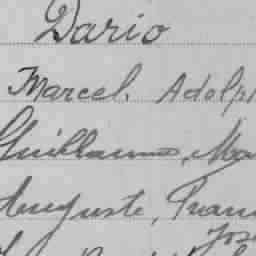 Dario
Marcel. Adolp
Guillaume, Ma
Auguste, Fran
Jos